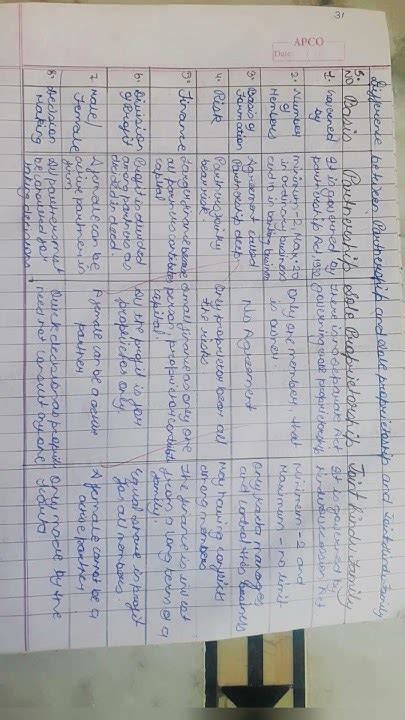 31
APCO
Date:
Difference between Partnership and Sole proprietorship and Joint Hindu Family
S. No Basis Partnership Sole Proprietorship Joint Hindu Family
1. Governed by
It is governed by partnership Act 1932
There is no separate Act governing sole proprietorship
It is governed by Hindu succession Act
2. Number of Members
minimum - 2, Max - 20 in ordinary business
Only one member, that is owner.
Minimum - 2 and Maximum - no limit
3. Basis of Formation
Agreement called Partnership deed
No Agreement
Only karta manages and control the business
4. Risk
Partners jointly bear risk.
Only proprietor bear all the risks
5. Finance
Large finance because all partners
capital
small finance as only one person
capital.
family.
6. Division of Profit
Profit is divided among partners as decided in deed.
All the profit is for proprietor only
Equal share in profit for all members.
7. Male/ Female
A female can be active partner in firm
A female can be a active partner
A female cannot be a active partner
8. Decision Making
All partners must be
taking decisions
Quick decisions as
need not consult anyone
Only made by the Karta